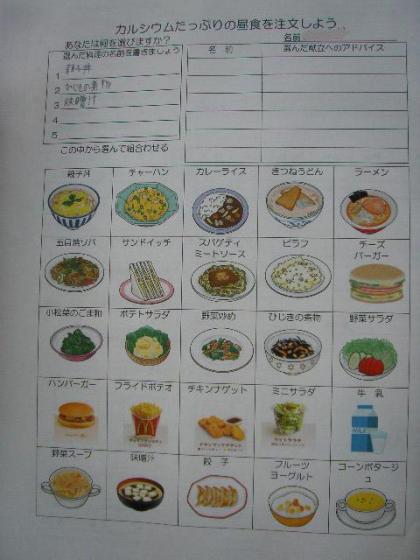 カルシウムたっぷりの昼食を注文しよう
あなたは何を選びますか?
名前
選んだ料理の名前を書きましょう
名 前
選んだ献立へのアドバイス
1 親子丼
2 ひじきの煮物
3 味噌汁
4
5
この中から選んで組合わせる
親子丼 チャーハン カレーライス きつねうどん ラーメン
五目焼ソバ サンドイッチ スパゲティミートソース ピラフ チーズバーガー
小松菜のごま和 ポテトサラダ 野菜炒め ひじきの煮物 野菜サラダ
ハンバーガー フライドポテオ チキンナゲット ミニサラダ 牛 乳
野菜スープ 味噌汁 餃 子 フルーツヨーグルト コーンポタージュ